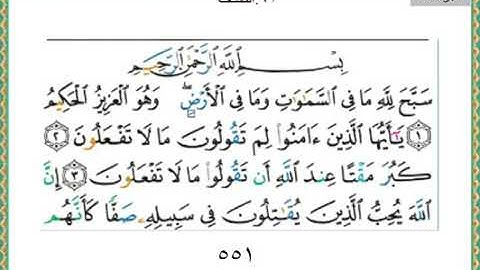 بِسْمِ اللَّهِ الرَّحْمَٰنِ الرَّحِيمِ
سَبَّحَ لِلَّهِ مَا فِي السَّمَاوَاتِ وَمَا فِي الْأَرْضِ ۖ وَهُوَ الْعَزِيزُ الْحَكِيمُ
﴿١﴾ يَا أَيُّهَا الَّذِينَ ءَامَنُوا لِمَ تَقُولُونَ مَا لَا تَفْعَلُونَ ﴿٢﴾
كَبُرَ مَقْتًا عِندَ اللَّهِ أَن تَقُولُوا مَا لَا تَفْعَلُونَ ﴿٣﴾ إِنَّ
اللَّهَ يُحِبُّ الَّذِينَ يُقَاتِلُونَ فِي سَبِيلِهِ صَفًّا كَأَنَّهُم
٥٥١